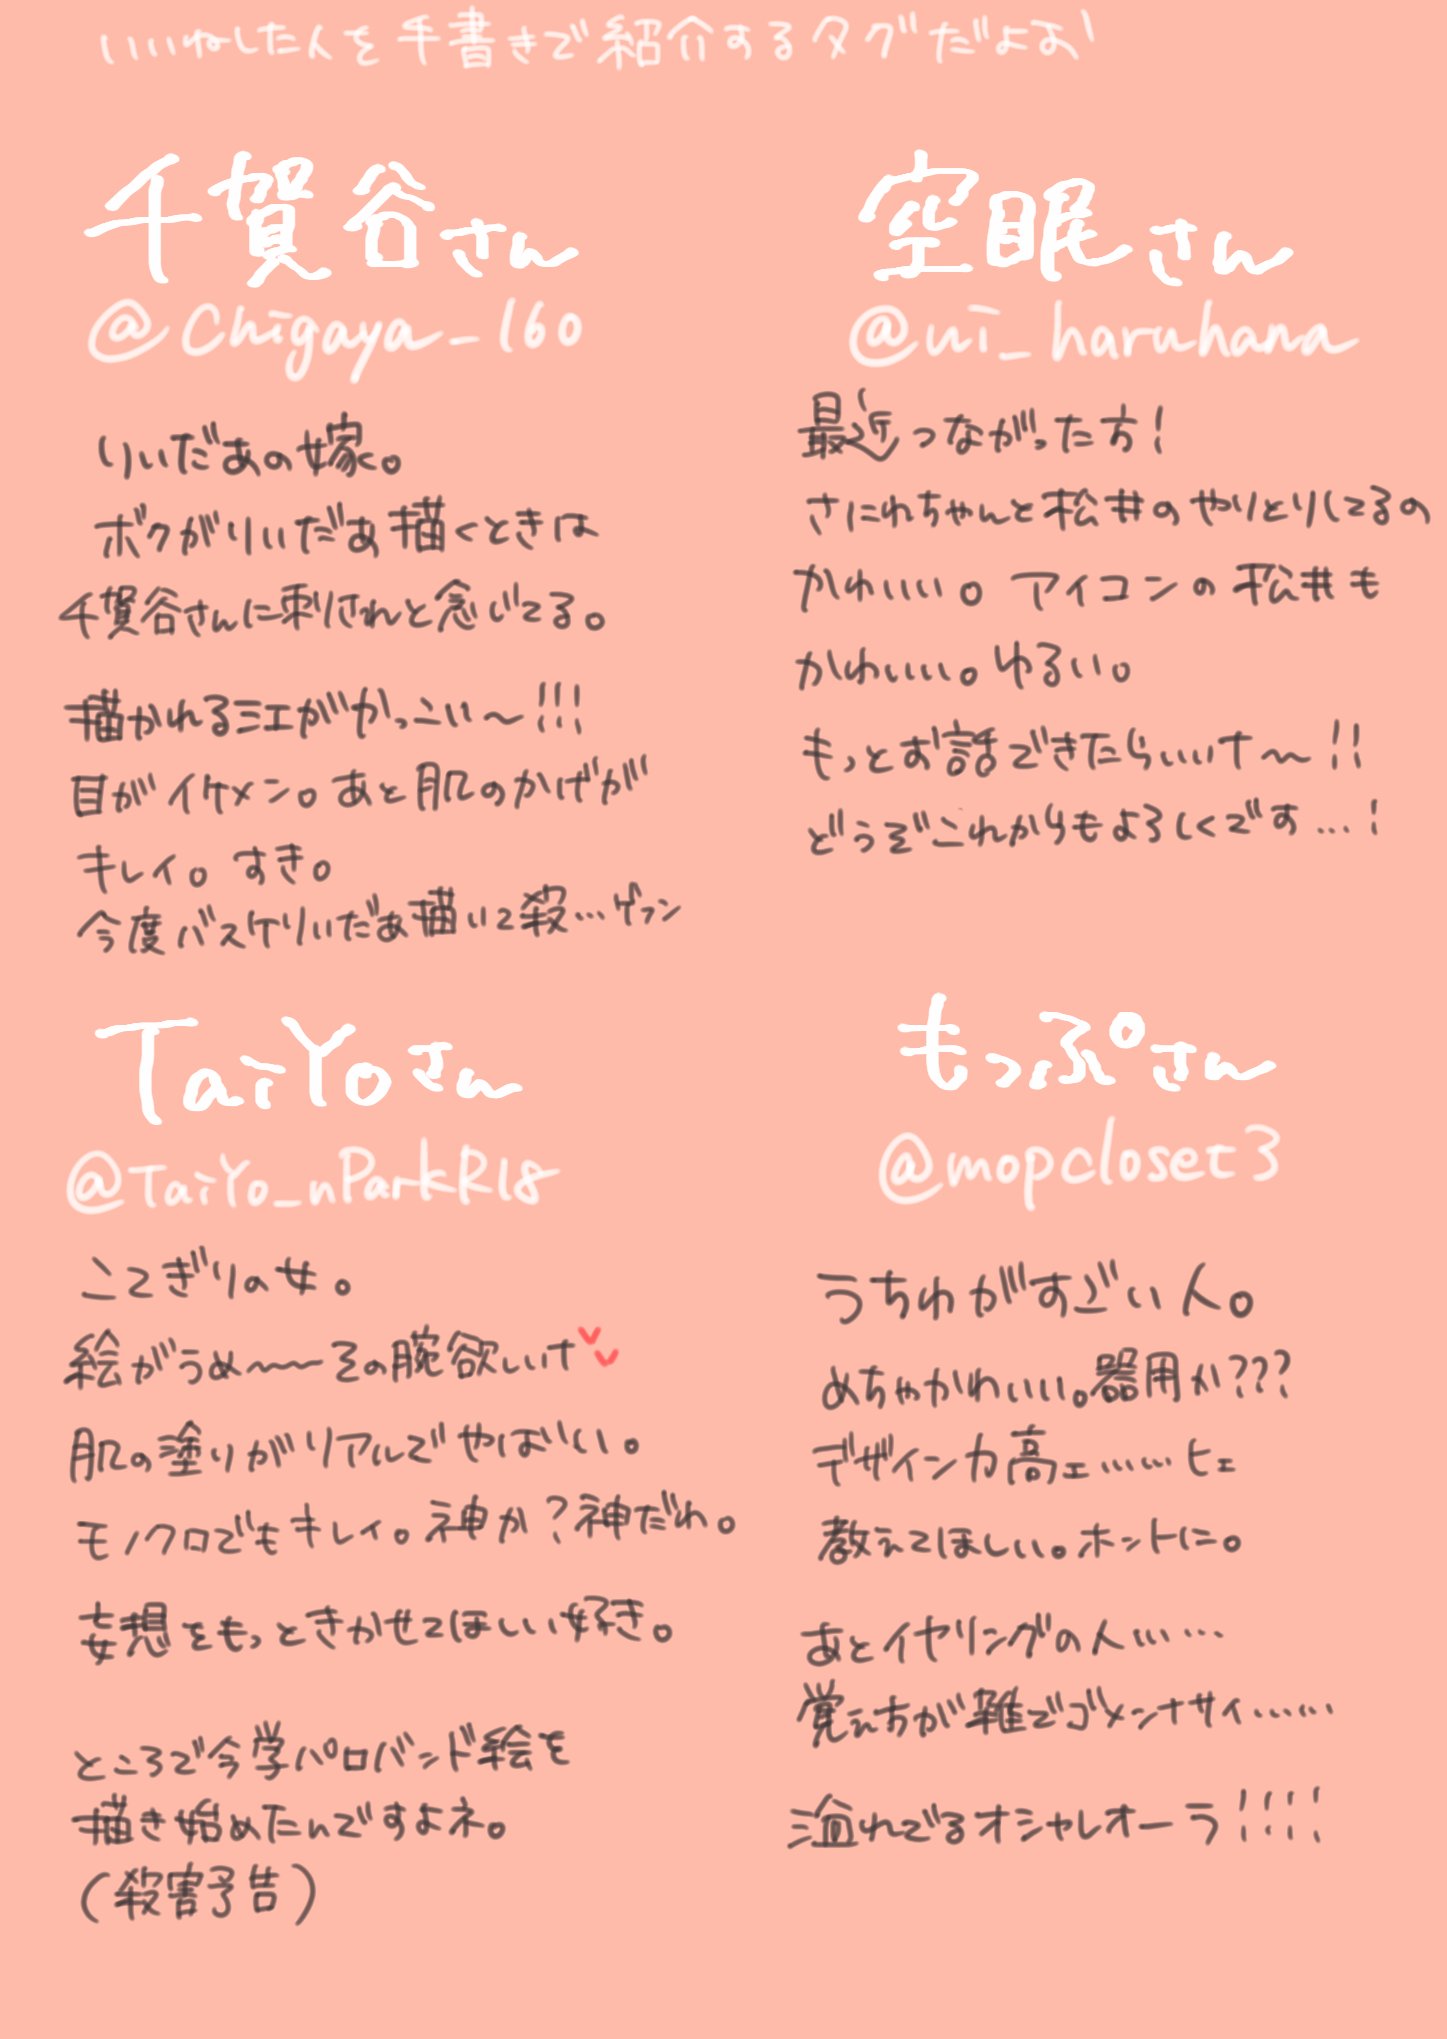 いいねした人を手書きで紹介するタグだよお!
千賀谷さん
@Chigaya_160
りいだあの嫁。
ボクがりいだあ描くときは
千賀谷さんに刺されと念じてる。
描かれる三江がかっこい〜!!!
目がイケメン。あと肌のかげが
キレイ。すき。
今度バスケりいだあ描いて殺…ゲフン
空眠さん
@ui_haruhana
最近つながった方!
さにわちゃんと松井のやりとりしてるの
かわいい。アイコンの松井も
かわいい。ゆるい。
もっとお話できたらいいナ〜!!
どうぞこれからもよろしくです…!
TaiYoさん
@TaiYo_nParkR18
こてぎりの女。
絵がうめ〜〜その腕欲しいナ
肌の塗りがリアルでやばいい。
モノクロでもキレイ。神か?神だわ。
妄想をもっときかせてほしい好き。
ところで今学パロバンド絵を
描き始めたんですよネ。
(殺害予告)
もっぷさん
@mopcloset3
うちわがすごい人。
めちゃかわいい。器用か???
デザイン力高ェ……ヒェ
教えてほしい。ホントに。
あとイヤリングの人……
覚え方が雑でゴメンナサイ……
溢れでるオシャレオーラ!!!!